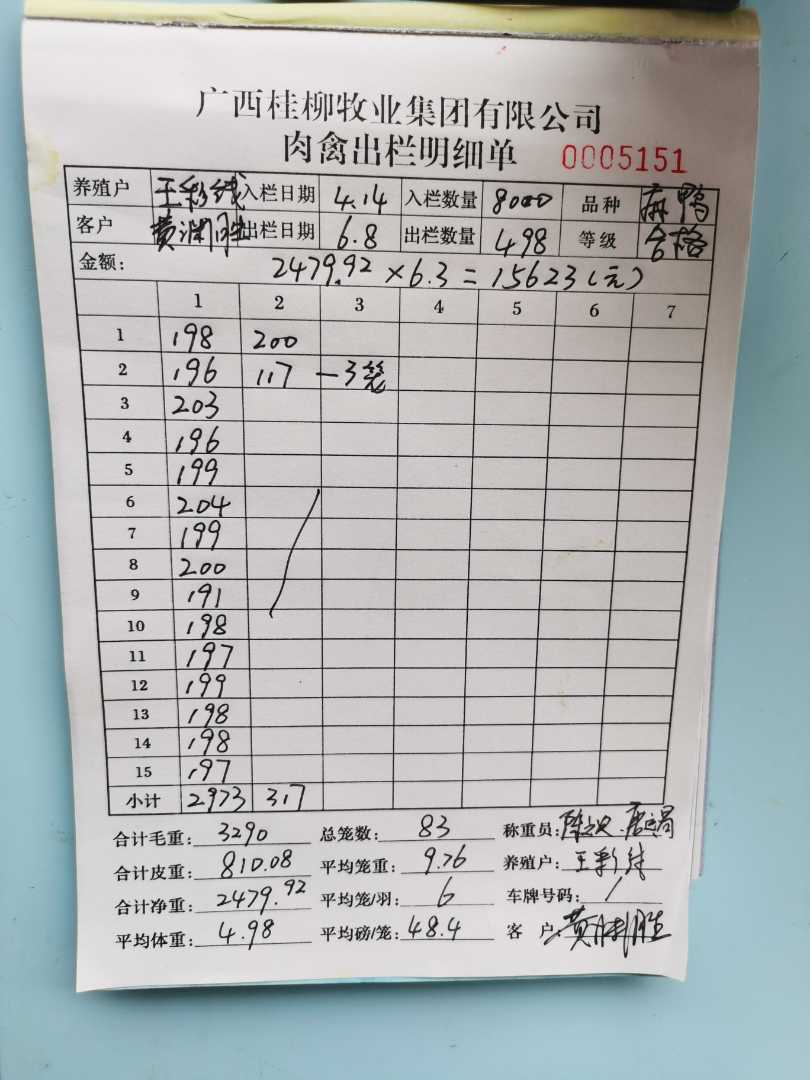 广西桂柳牧业集团有限公司
肉禽出栏明细单 0005151
养殖户 王彩线 入栏日期 4.14 入栏数量 8000 品种 麻鸭
客户 黄润胜 出栏日期 6.8 出栏数量 498 等级 合格
金额: 2479.92×6.3=15623(元)
1 2 3 4 5 6 7
1 198 200
2 196 117 —3笼
3 203
4 196
5 199
6 204
7 199
8 200
9 191
10 198
11 197
12 199
13 198
14 198
15 197
小计 2973 317
合计毛重: 3290 总笼数: 83 称重员:
合计皮重: 810.08 平均笼重: 9.76 养殖户: 王彩线
合计净重: 2479.92 平均笼/羽: 6 车牌号码: /
平均体重: 4.98 平均磅/笼: 48.4 客户: